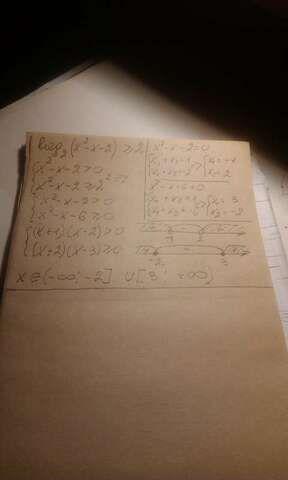 log₂(x²-x-2) ≥ 2
{ x²-x-2>0
{ x²-x-2≥2²
{ x²-x-2>0
{ x²-x-6≥0
{ (x+1)(x-2)>0
{ (x+2)(x-3)≥0
x²-x-2=0
x₁+x₂=1 x₁=-1
x₂=2
x²-x-6=0
x₁+x₂=1 x₁=3
x₁x₂=-6 x₂=-2
-1 2
-2 3
x∈(-∞; -2] ∪ [3; +∞)